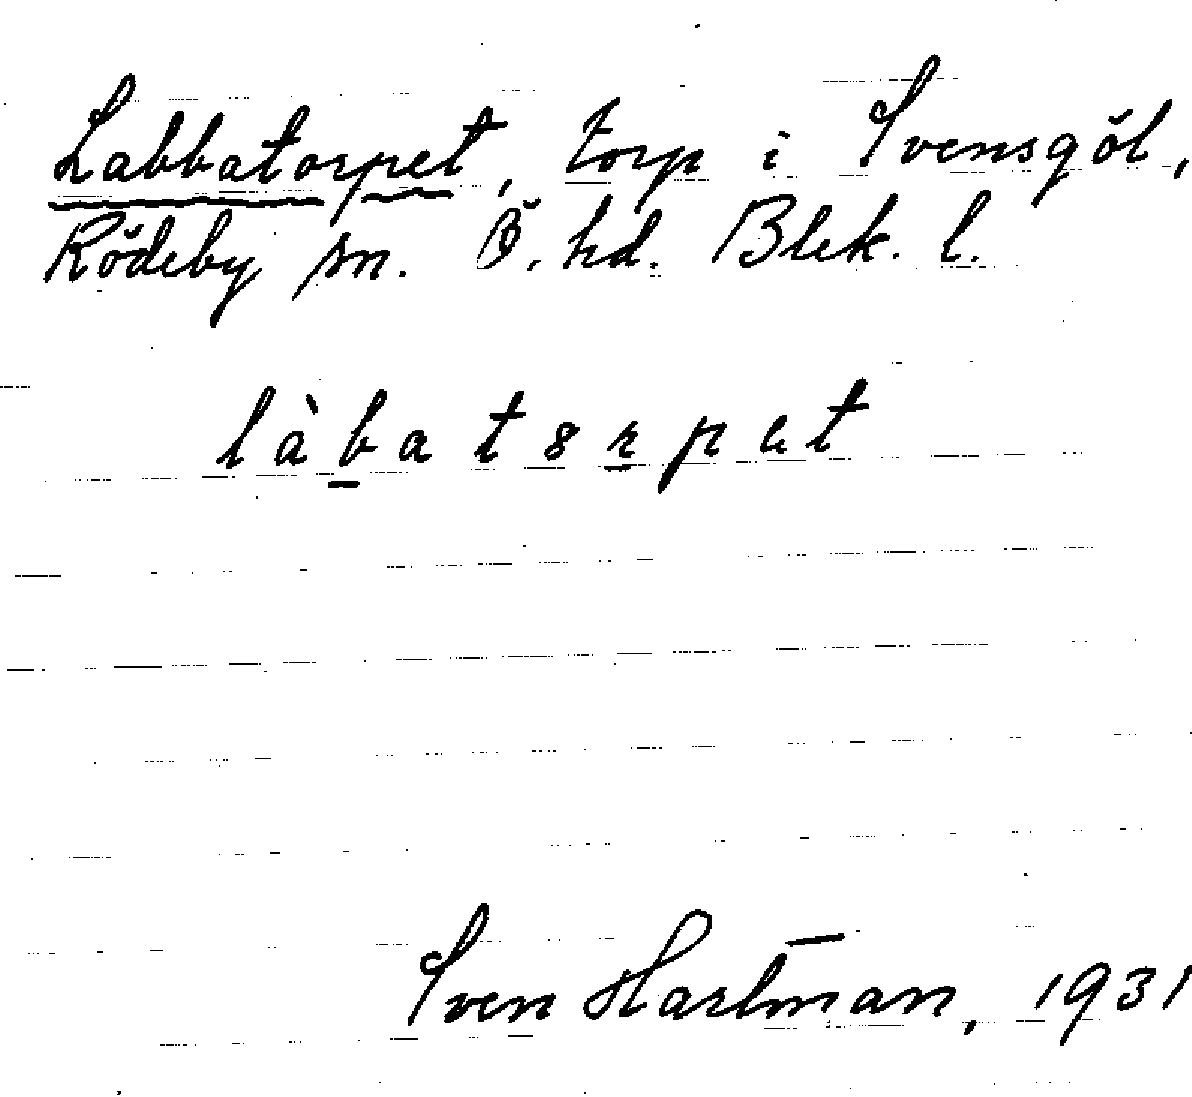 Labbatorpet, torp i Svensgöl,
Rödeby sn. Ö. hd. Blek. l.
làbatorpet
Sven Hartman, 1931